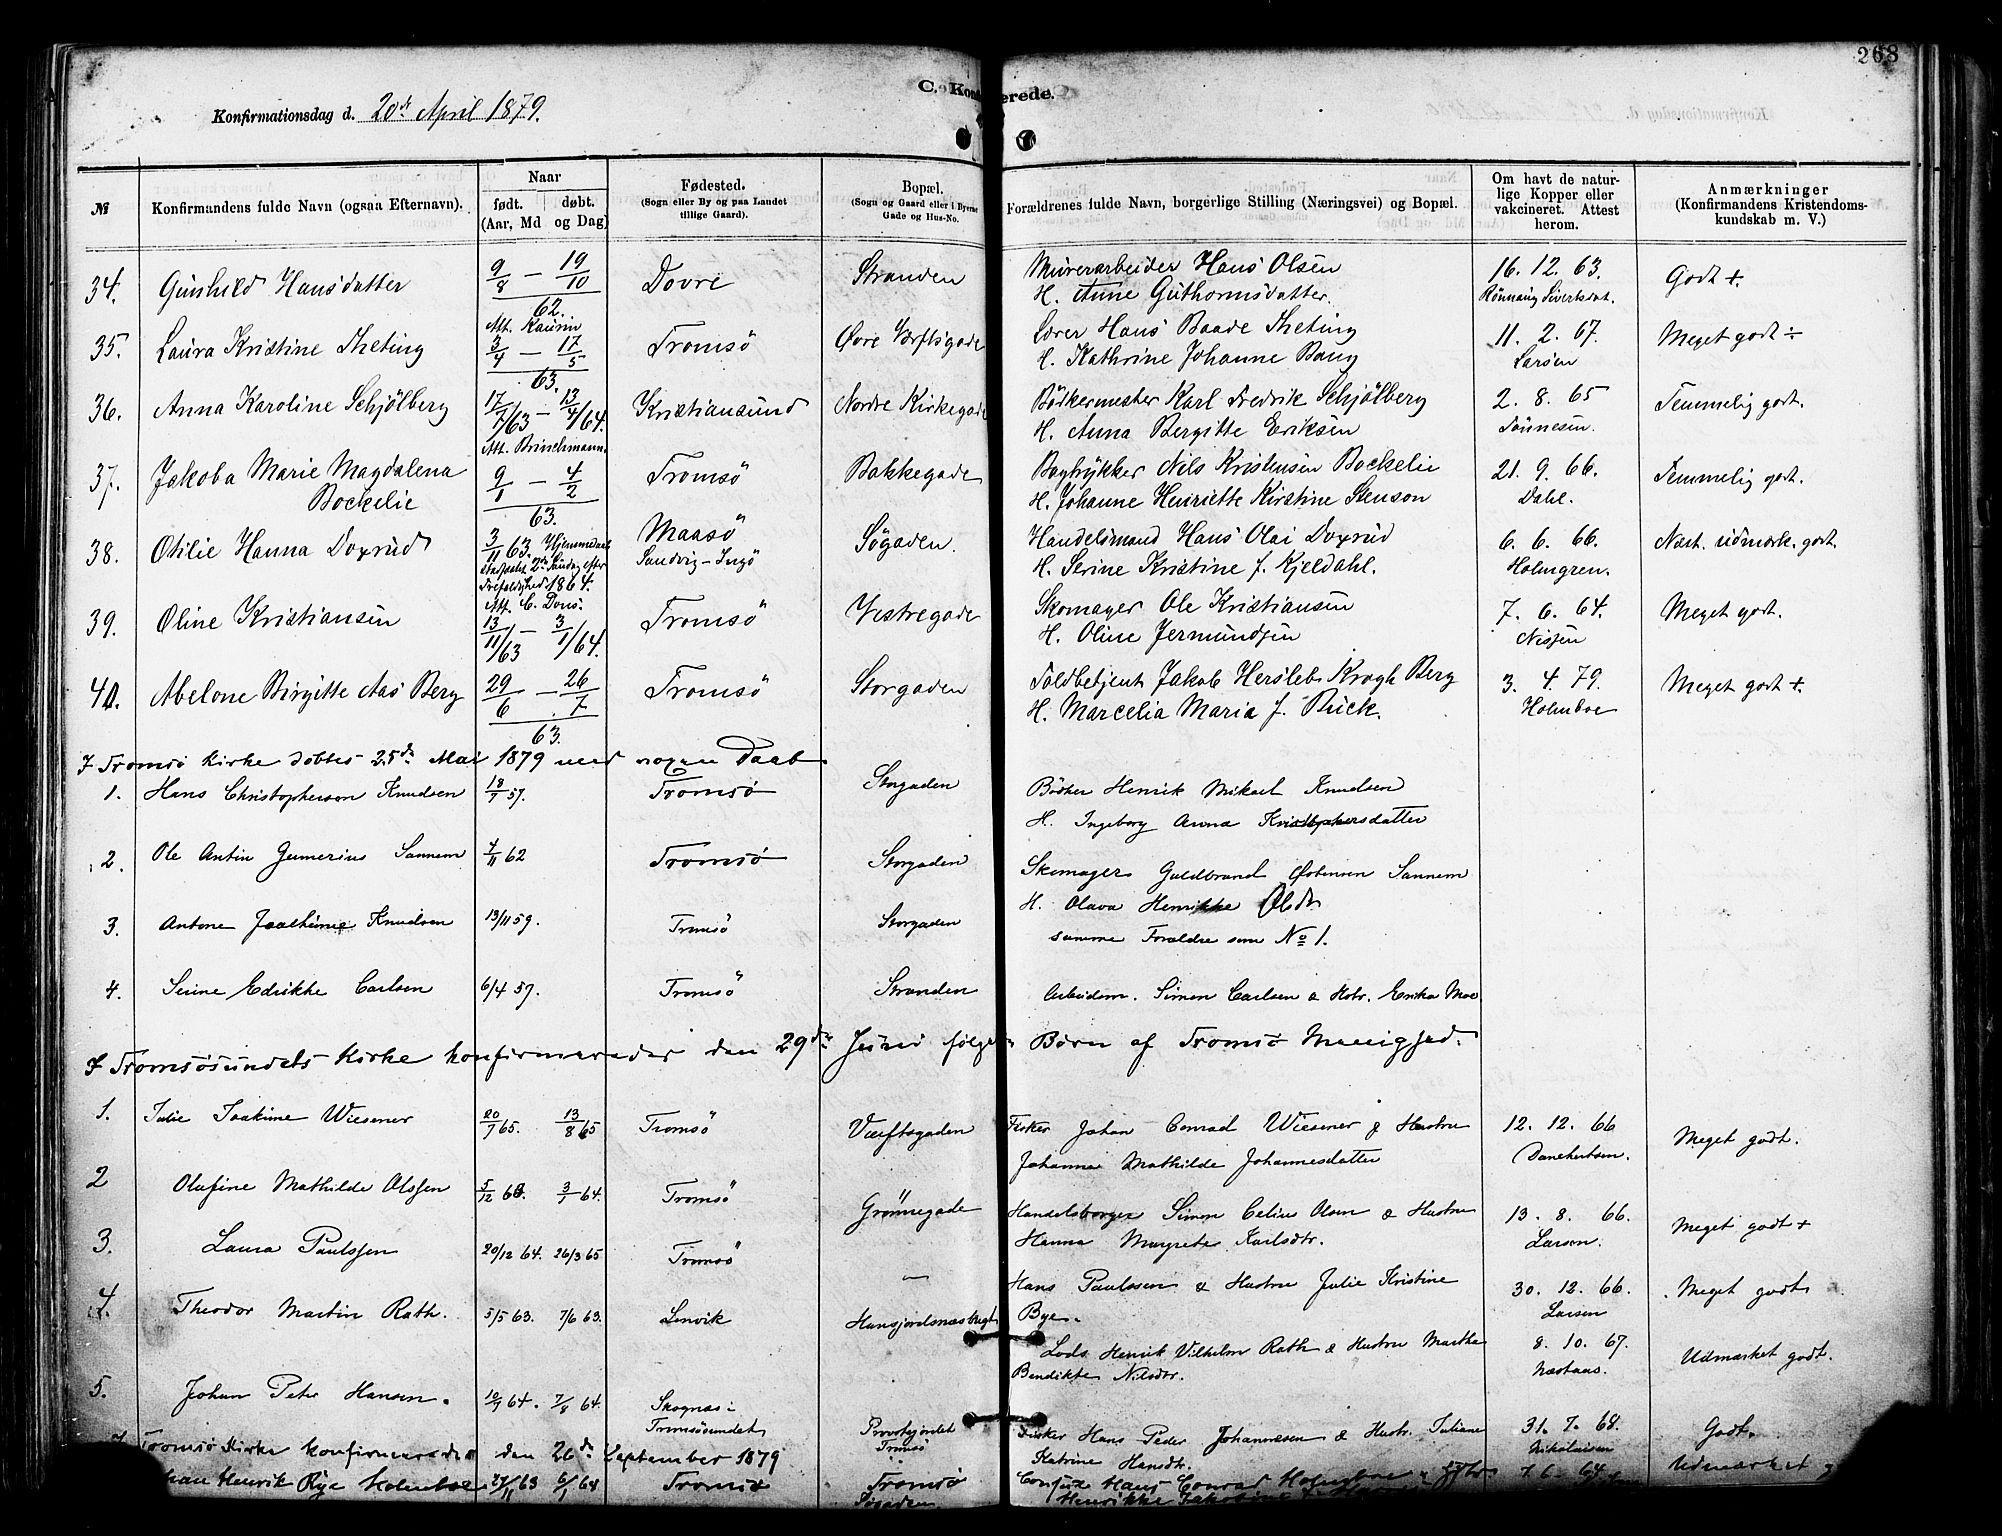 268
C. Konfirmerede.
Konfirmationsdag d. 20de April 1879.
№
Konfirmandens fulde Navn (ogsaa Efternavn).
Naar
født. døbt.
(Aar, Md og Dag)
Fødested.
(Sogn eller By og paa Landet
tillige Gaard).
Bopæl.
(Sogn og Gaard eller i Byerne
Gade og Hus-No.
Forældrenes fulde Navn, borgerlige Stilling (Næringsvei) og Bopæl.
Om havt de natur-
lige Kopper eller
vakcineret. Attest
herom.
Anmærkninger
(Konfirmandens Kristendoms-
kundskab m. V.)
34. Gunhild Hansdatter 9/8 — 19/10 62. Dovre Stranden Murerarbeider Hans Olsen 16. 12. 63. Godt +.
H. Anne Guthormsdatter. Rönnaug Sivertsdat.
35. Laura Kristine Theting 3/4 — 17/5 63. Tromsö Øvre Verftsgade Lærer Hans Baade Theting 11. 2. 67. Meget godt ÷
H. Kathrine Johanne Bang Larsen
36. Anna Karoline Schjölberg 17/7/63 — 13/4/64. Kristiansund Nordre Kirkegade Bödkermester Karl Fredrik Schjölberg 2. 8. 65 Temmelig godt.
Att. Brinchmann. H. Anna Bergitte Eriksen Tönnesen.
37. Jakoba Marie Magdalena 9/1 — 4/2 63. Tromsö Bakkegade Bogtrykker Nils Kristensen Bockelie 21. 9. 66. Temmelig godt.
Bockelie H. Johanne Henriette Kirstine Stenson Dahl.
38. Otilie Hanna Doxrud 3/11 63. Hjemmedaab Maasö Søgaden. Handelsmand Hans Olai Doxrud 6. 6. 66. Næst. udmærk. godt.
stadfæstet 2de Søndag efter Sandvig-Ingö H. Serine Kristine f. Kjeldahl. Holmgren.
Trefoldighed. 1864.
Att. C. Dons.
39. Oline Kristiansen 13/11/63 — 3/1/64. Tromsö Vestregade Skomager Ole Kristiansen 7. 6. 64. Meget godt.
H. Oline Jermundsen Nissen
40. Abelone Birgitte Aas Berg 29/6 — 26/7 63. Tromsö Storgaden Toldbetjent Jakob Hersleb Krogh Berg 3. 4. 79. Meget godt +.
H. Marcelia Maria f. Buck. Holmboe
I Tromsö Kirke döbtes 25de Mai 1879 med voxen Daab
1. Hans Christopherson Knudsen 18/7 57. Tromsö Storgaden Bödker Henrik Mikael Knudsen
H. Ingeborg Anna Kristophersdatter
2. Ole Antin Gumerius Sannem 4/11 62 Tromsö Storgaden Skomager Guldbrand Østensen Sannem
H. Olava Henrikke Olsdr
3. Antone Joachime Knudsen 13/11 59. Tromsö Storgaden samme Forældre som No 1.
4. Serine Edrikke Carlsen 6/4 57. Tromsö Stranden Arbeidsm. Simon Carlsen & Hstr. Erika Moe
I Tromsösundets Kirke konfirmeredes den 29de Juni følgen Børn af Tromsö Menighed.
1. Julie Joakime Wiesener 20/7 65. 13/8 65 Tromsö Værftsgaden Fisker Johan Conrad Wiesener & Hustru 12. 12. 66 Meget godt.
Johanna Mathilde Johannesdatter Danehertsen.
2 Olufine Mathilde Olssen 5/12 63. 3/1 64. Tromsö Grönnegade Handelsborger Simon Celius Olsen & Hustru 13. 8. 66. Meget godt +
Hanna Margrete Karlsdtr. Larsen.
3. Laura Paulssen 20/12 64. 26/3 65 Tromsö — Hans Paulssen & Hustru Julie Kristine 30. 12. 66. Meget godt
Bye. Larsen
4. Theodor Martin Rath. 5/5 63. 7/6 63. Lenvik Hansjordsnæsbugt Lods Henrik Vilhelm Rath & Hustru Martha 8. 10. 67. Udmærket godt.
Bendikte Nilsdtr. Næstaas.
5. Johan Peter Hansen. 10/7 64. 7/8 64. Skognæs i Provstejordet Fisker Hans Peder Johannesen & Hustr. Juliane 31. 7. 68. Godt.
Tromsösundet Tromsö Katrine Hansdtr. Nikolaisen
Tromsö Kirke konfirmeredes den 26de September 1879
Henrik Rye Holmboe 27/11 63 6/1 64 Tromsö Tromsö Consul Hans Conrad Holmboe 7. 6. 64 Udmærket
Søgaden Henrikke